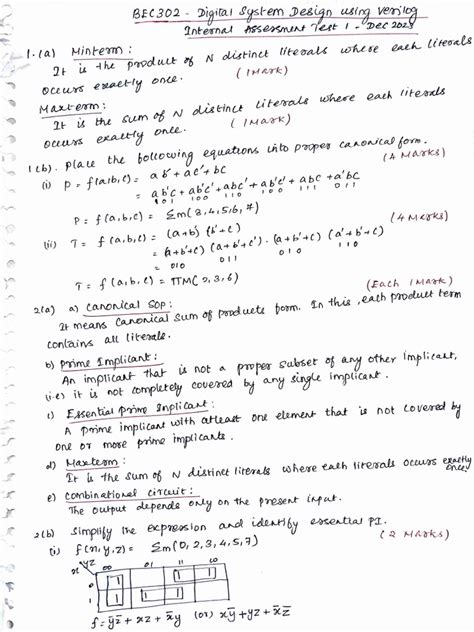 BEC302 - Digital System Design using Verilog
Internal Assessment Test 1 - Dec 2023
1.(a) Minterm:
It is the product of N distinct literals where each literals
occurs exactly once. (1Mark)
Maxterm:
It is the sum of N distinct literals where each literals
occurs exactly once. (1Mark)
1(b). Place the following equations into proper canonical form.
(4 Marks)
(i) P = f(a,b,c) = ab' + ac' + bc
= ab'c + ab'c' + abc' + ab'c' + abc + a'bc
101 100 110 100 111 011
P = f(a,b,c) = Σm(3,4,5,6,7)
(ii) T = f(a,b,c) = (a+b') (b'+c) (4 Marks)
= (a+b'+c) (a+b'+c') . (a+b'+c) (a'+b'+c)
010 011 010
T = f(a,b,c) = πM(2,3,6)
2(a) a) Canonical SOP: (Each 1Mark)
It means Canonical Sum of products form. In this, each product term
contains all literals.
b) Prime Implicant:
An implicant that is not a proper subset of any other Implicant,
(i.e) it is not completely covered by any single implicant.
c) Essential prime Implicant:
A prime implicant with atleast one element that is not covered by
one or more prime implicants.
d) Maxterm:
It is the sum of N distinct literals where each literals occurs exactly
once.
e) Combinational circuit:
The output depends only on the present input.
2(b) Simplify the expression and identify essential PI.
(i) f(x,y,z) = Σm(0,2,3,4,5,7) (2 Marks)
x yz 00 01 11 10
0 1 1 1
1 1 1 1
f = y̅z̅ + xz + x̅y (or) xy̅ + yz + x̅z̅